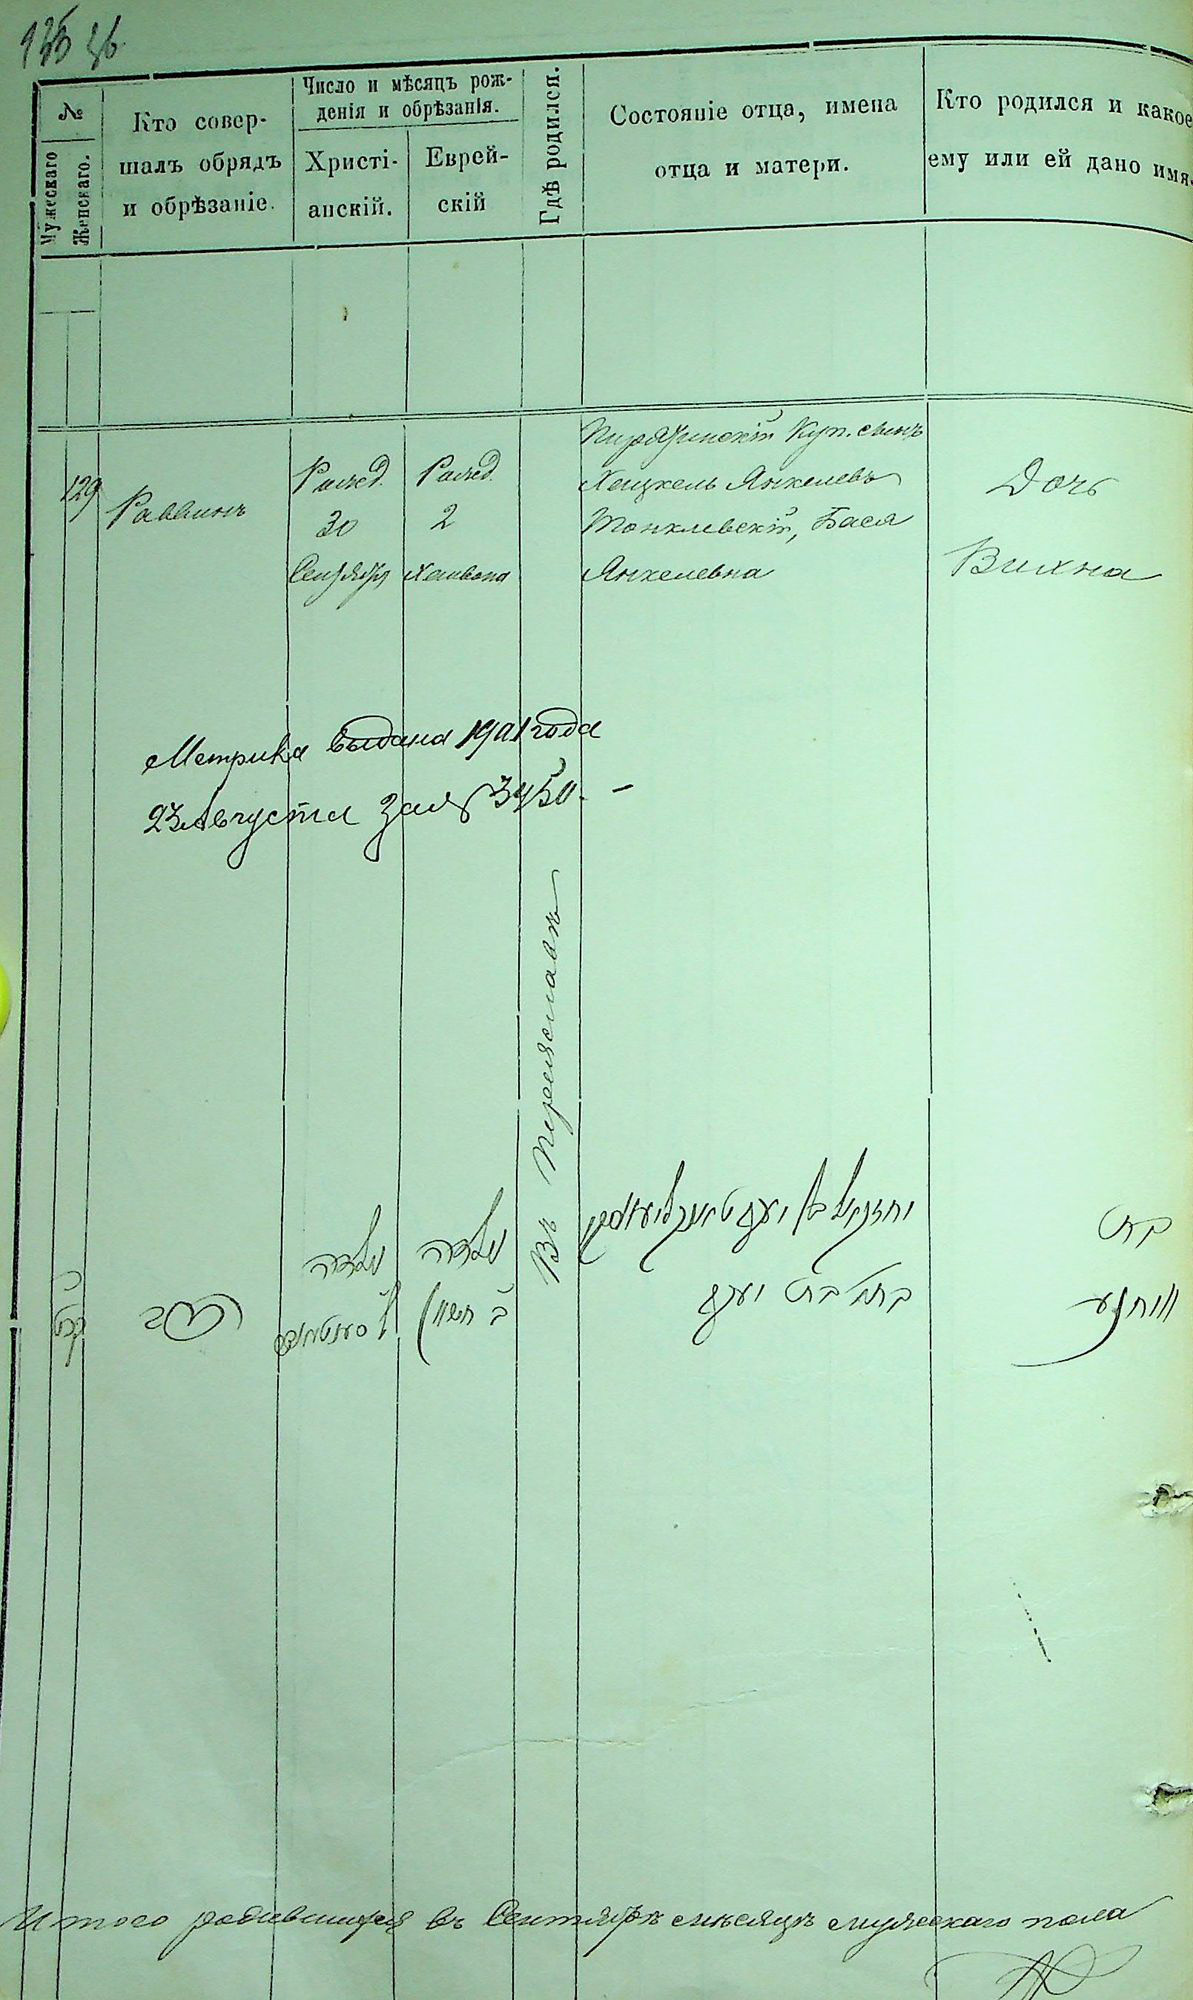 №
Мужескаго
Женскаго.
Кто совер-
шалъ обрядъ
и обрѣзаніе.
Число и мѣсяцъ рож-
денія и обрѣзанія.
Христі-
анскій.
Еврей-
скій
Гдѣ родился.
Состояніе отца, имена
отца и матери.
Кто родился и какое
ему или ей дано имя.
129
Раввинъ
Рожд.
30
Сентября
Рожд.
2
Хешвона
Пирятинскій Куп. сынъ
Хацкель Янкелевъ
Тонклевскій, Бася
Янкелевна
Дочь
Вихна
Метрика выдана 1901 года
23 Августа за № 3450. –
Въ Переяславѣ
נולדה
נולדה
ב חשון
יחזקאל
בת יעקב
בת
Итого родившихся въ Сентябрѣ мѣсяцѣ мужескаго пола